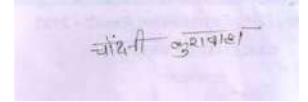 चाँदनी कुशवाहा